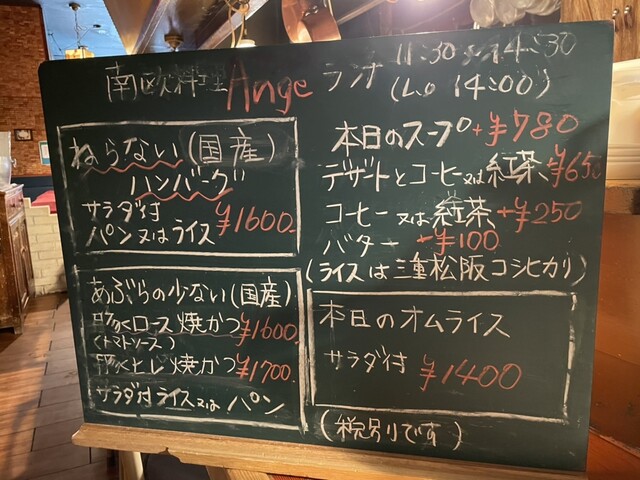 南欧料理 Ange ランチ 11:30～14:30
(L.o 14:00)
ねらない(国産)
ハンバーグ
サラダ付
パン又はライス ¥1600.
あぶらの少ない(国産)
豚ロース焼かつ ¥1600.
(トマトソース)
豚ヒレ焼かつ ¥1700.
サラダ付ライス又はパン
本日のスープ+¥780
デザートとコーヒー又は紅茶、¥650
コーヒー又は紅茶、+¥250
バター +¥100
(ライスは三重松阪コシヒカリ)
本日のオムライス
サラダ付 ¥1400
(税別です)